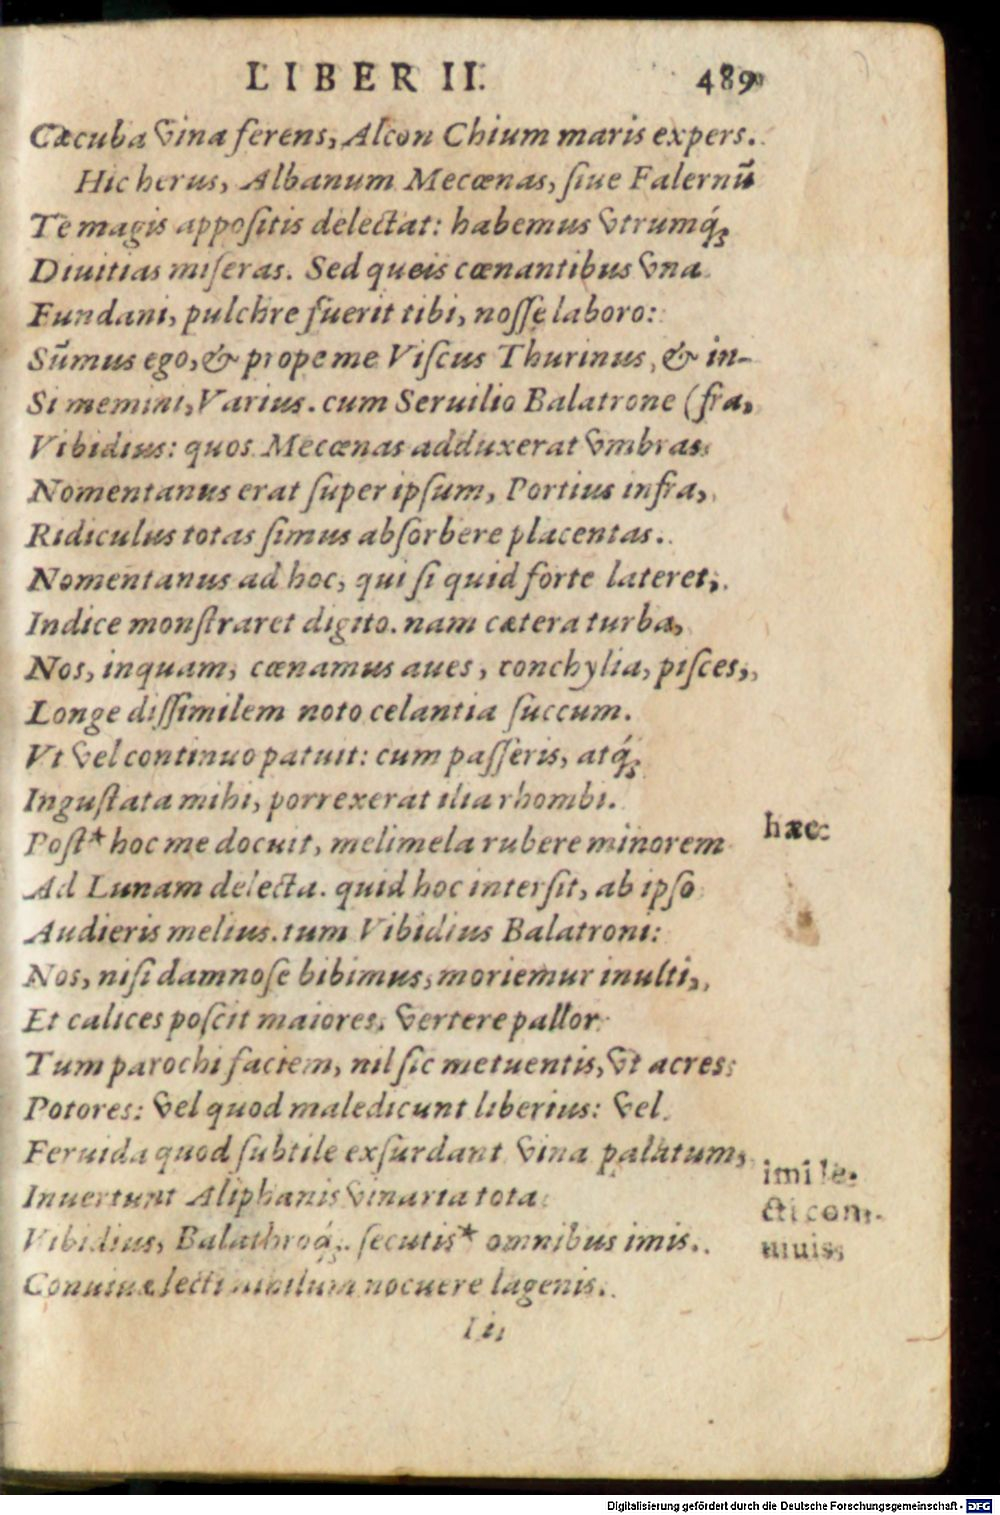 LIBER II. 489
Cæcuba vina ferens, Alcon Chium maris expers.
Hic herus, Albanum Mecœnas, siue Falernū
Te magis appositis delectat: habemus vtrumq́;
Diuitias miseras. Sed queis cœnantibus vna
Fundani, pulchre fuerit tibi, nosse laboro:
Sūmus ego, & prope me Viscus Thurinus, & in-
Si memini, Varius. cum Seruilio Balatrone (fra,
Vibidius: quos Mecœnas adduxerat vmbras:
Nomentanus erat super ipsum, Portius infra,
Ridiculus totas simus absorbere placentas.
Nomentanus ad hoc, qui si quid forte lateret,
Indice monstraret digito. nam cætera turba,
Nos, inquam, cœnamus aues, conchylia, pisces,
Longe dissimilem noto celantia succum.
Vt vel continuo patuit: cum passeris, atq́;
Ingustata mihi, porrexerat ilia rhombi.
Post* hoc me docuit, melimela rubere minorem
hæc
Ad Lunam delecta. quid hoc intersit, ab ipso
Audieris melius. tum Vibidius Balatroni:
Nos, nisi damnose bibimus, moriemur inulti,
Et calices poscit maiores. vertere pallor
Tum parochi faciem, nil sic metuentis, vt acres
Potores: vel quod maledicunt liberius: vel
Feruida quod subtile exsurdant vina palatum,
Inuertunt Aliphanis vinaria tota
Vibidius, Balathroq́;. secutis* omnibus imis.
imi le-
cti con-
uiuis
Conuiuæ lecti nihilum nocuere lagenis.
Digitalisierung gefördert durch die Deutsche Forschungsgemeinschaft - DFG